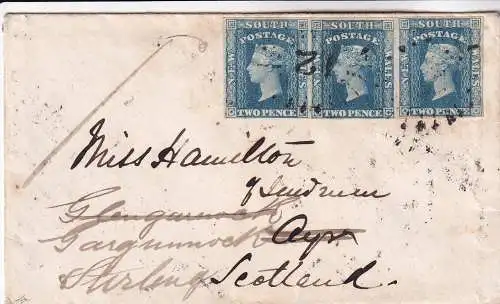 SOUTH SOUTH SOUTH
POSTAGE POSTAGE POSTAGE
NEW WALES NEW WALES NEW WALES
TWO PENCE TWO PENCE TWO PENCE
Miss Hamilton
of
Glengarnock
Gargunnock Ayr
Stirling Scotland.